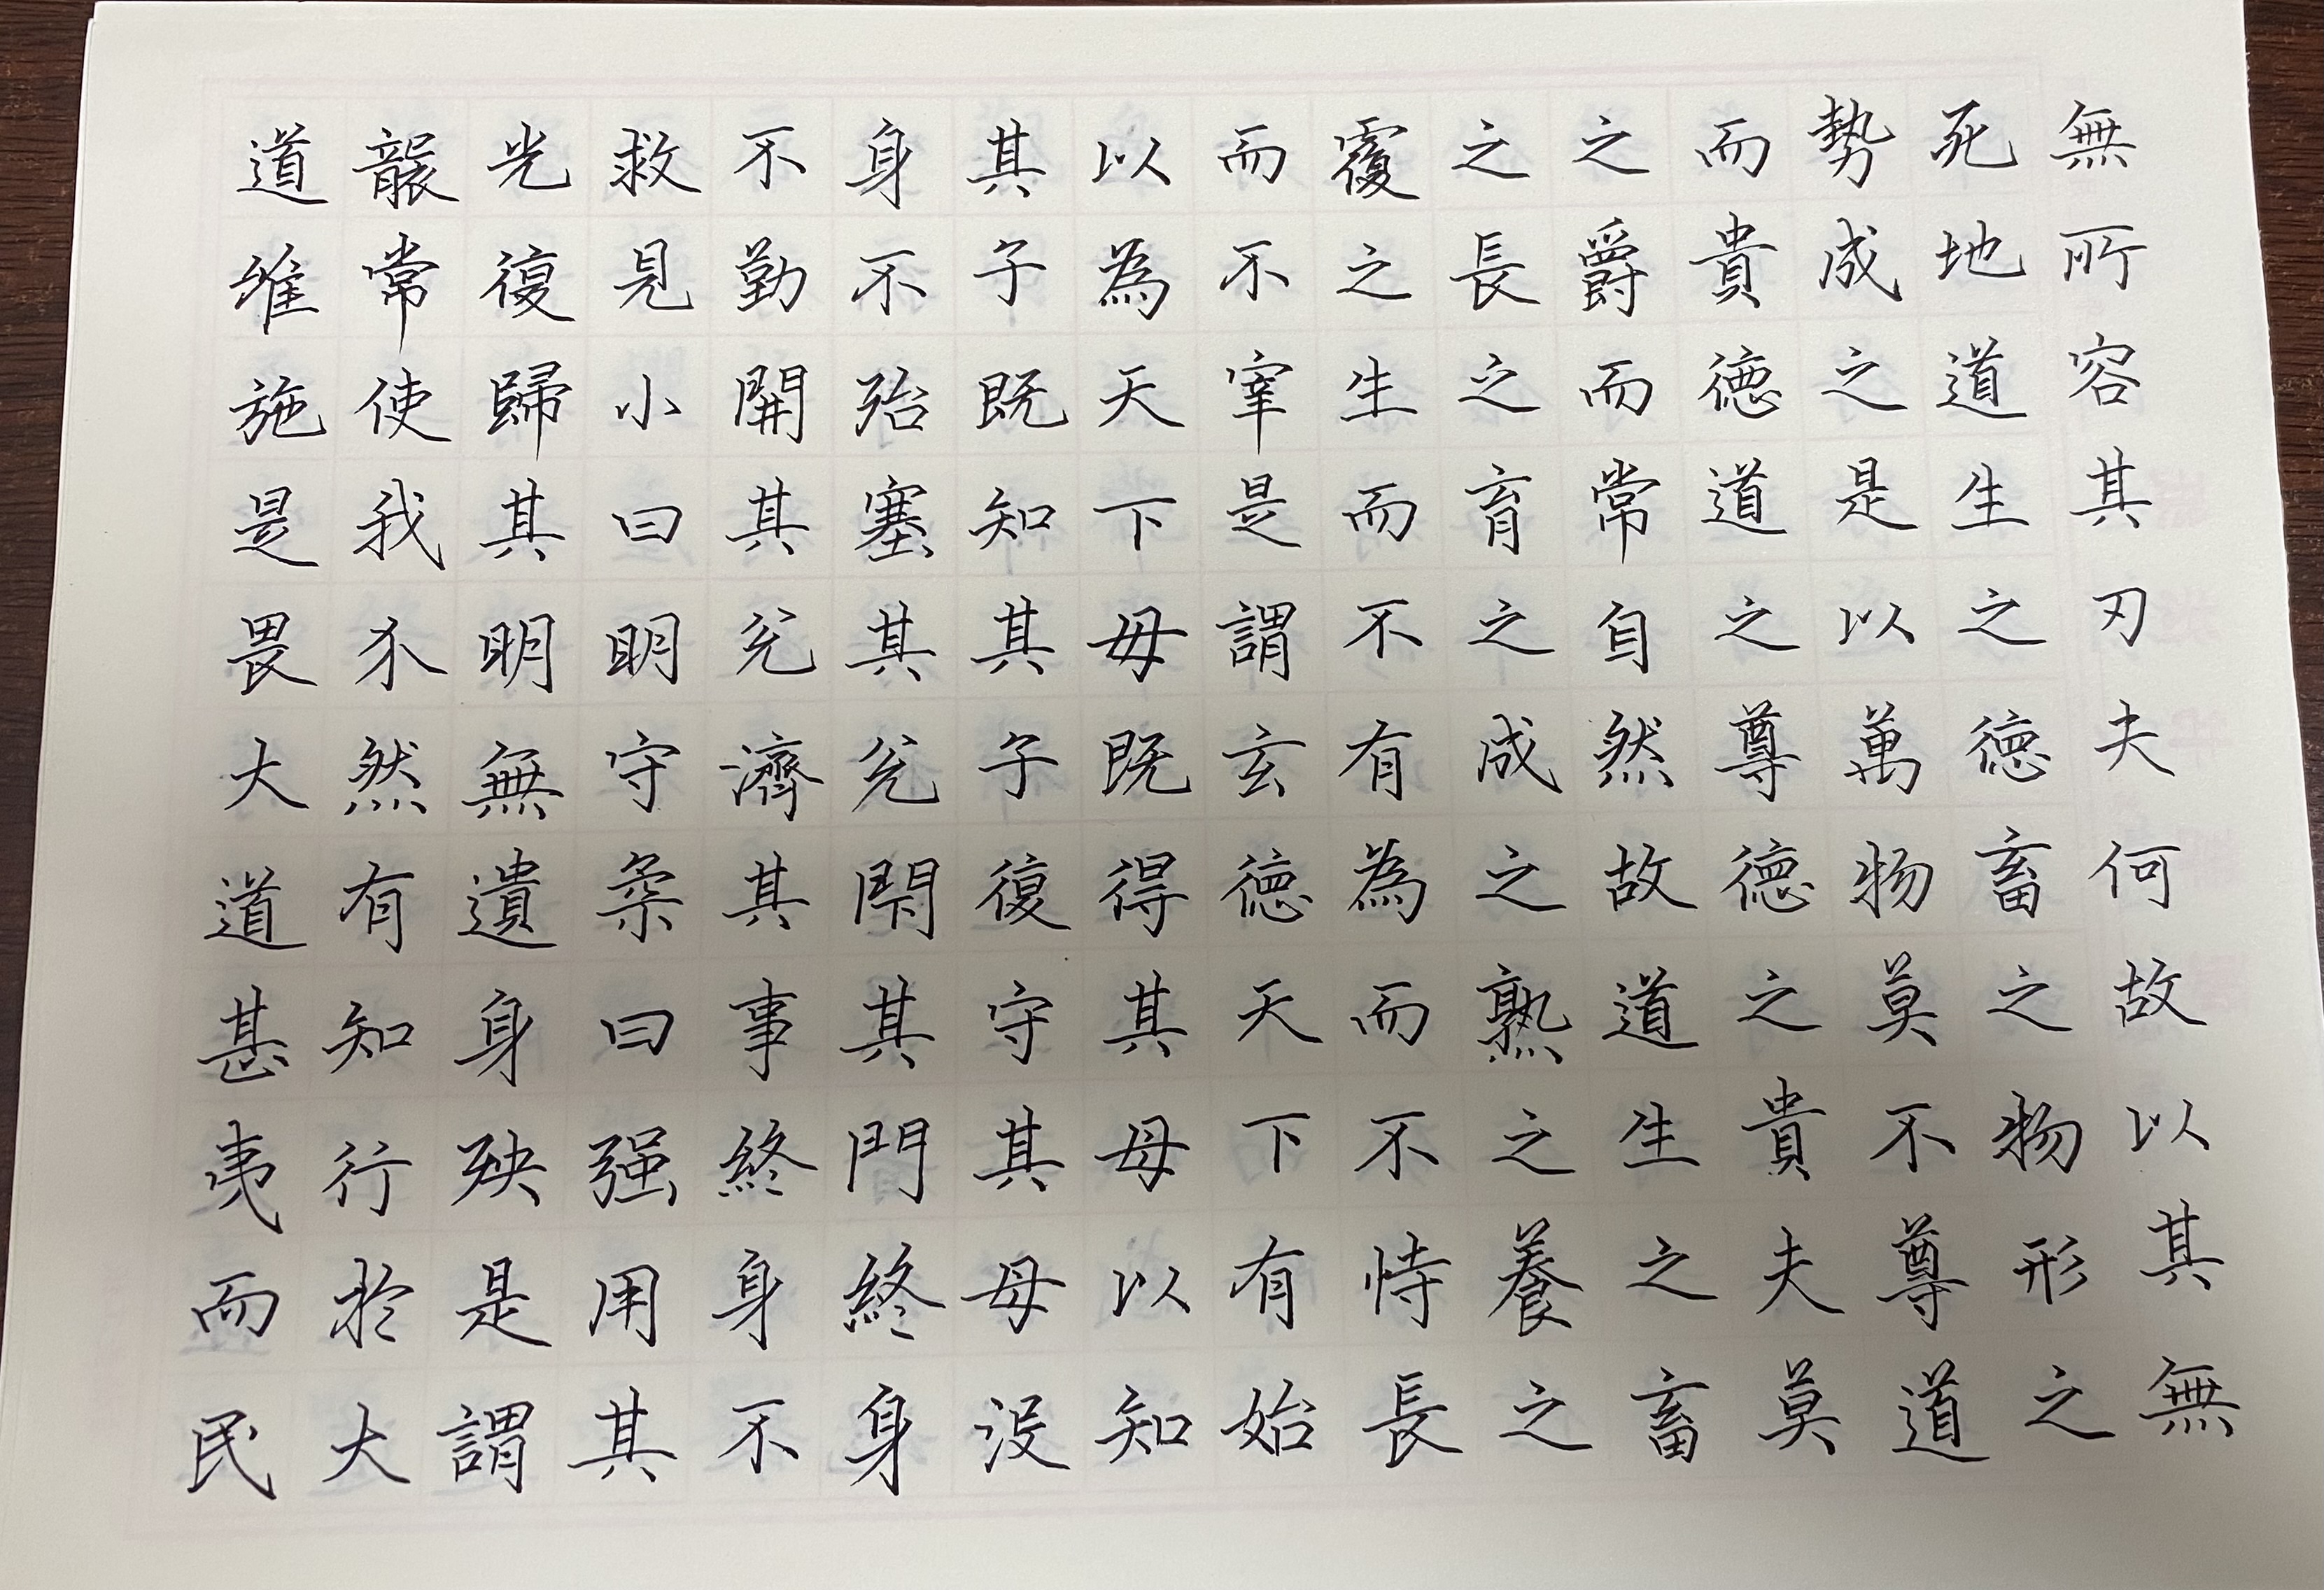 無所容其刃夫何故以其無
死地道生之德畜之物形之
勢成之是以萬物莫不尊道
而貴德道之尊德之貴夫莫
之爵而常自然故道生之畜
之長之育之成之熟之養之
覆之生而不有為而不恃長
而不宰是謂玄德天下有始
以為天下母既得其母以知
其子既知其子復守其母没
身不殆塞其兌閉其門終身
不勤開其兌濟其事終身不
救見小曰明守柔曰强用其
光復歸其明無遺身殃是謂
襲常使我介然有知行於大
道維施是畏大道甚夷而民